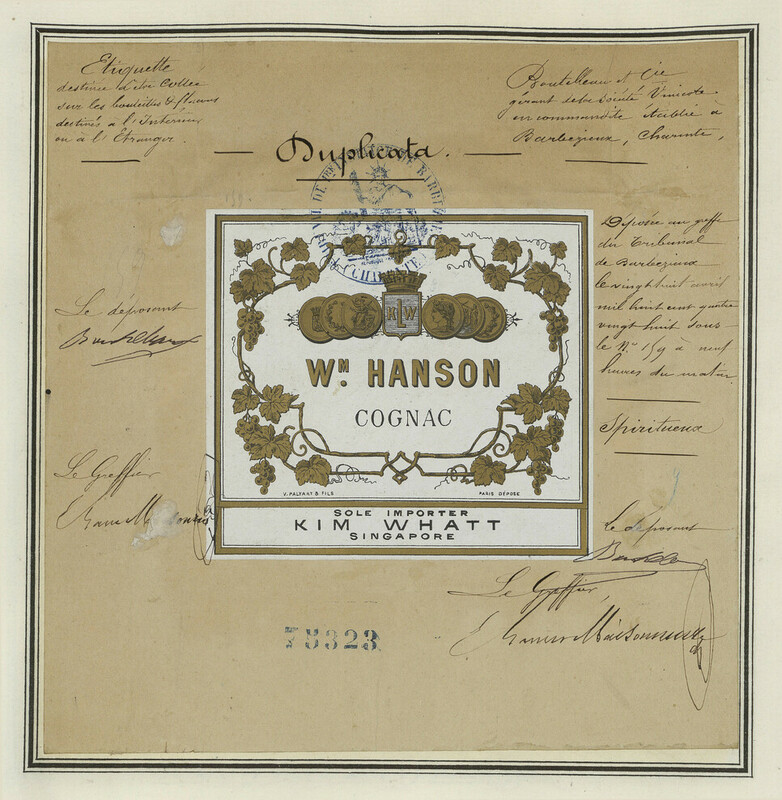 Etiquette
destinée à être collée
sur les bouteilles & flacons
destinés à l'Intérieur
ou à l'Etranger.
Boutelleau et Cie
gérant de la Société Vinicole
en commandite établie à
Barbezieux, Charente,
Duplicata.
TRIBUNAL DE
CHARENTE
Déposée au greffe
du Tribunal
de Barbezieux
le vingt huit avril
mil huit cent quatre
vingt huit sous
le N.o 159 à neuf
heures du matin.
Spiritueux
Le déposant
Le Greffier
KLW
WM. HANSON
COGNAC
V. PALYART & FILS
PARIS DÉPOSÉ
SOLE IMPORTER
KIM WHATT
SINGAPORE
Le déposant
Le Greffier
78323